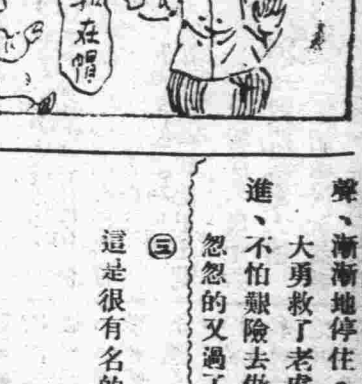 在帽
聲、漸漸地停住
大勇救了老
進、不怕艱險去
忽忽的又過了
㊂
這是很有名的